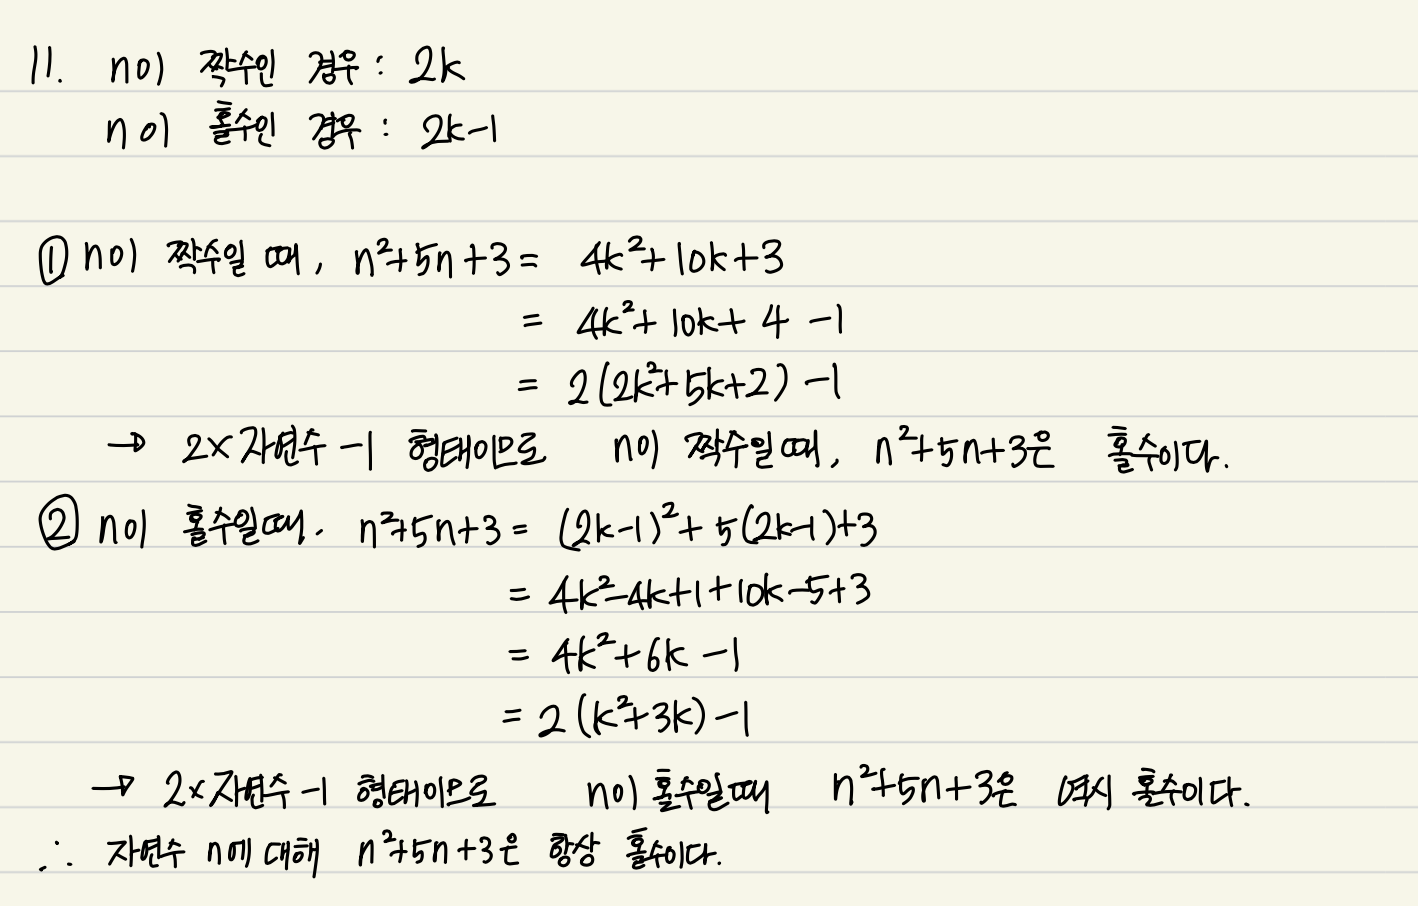 11. n이 짝수인 경우 : 2k
n이 홀수인 경우 : 2k-1
① n이 짝수일 때, n²+5n+3 = 4k²+10k+3
= 4k²+10k+4-1
= 2(2k²+5k+2)-1
→ 2×자연수-1 형태이므로 n이 짝수일 때, n²+5n+3은 홀수이다.
② n이 홀수일 때. n²+5n+3 = (2k-1)²+5(2k-1)+3
= 4k²-4k+1+10k-5+3
= 4k²+6k-1
= 2(k²+3k)-1
→ 2×자연수-1 형태이므로 n이 홀수일 때 n²+5n+3은 역시 홀수이다.
∴ 자연수 n에 대해 n²+5n+3은 항상 홀수이다.